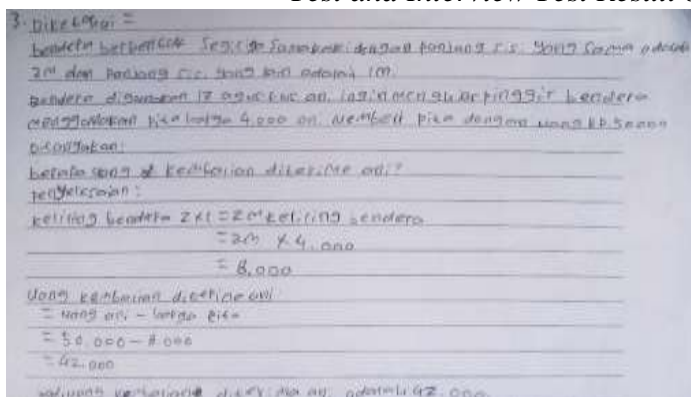 3. Diketahui =
bendera berbentuk Segitiga Samakaki dengan panjang s.s. yang Sama adalah
2m dan panjang s.s. yang lain adalah 1m.
bendera digunakan 17 agustus an. ingin pinggir bendera
menggunakan Pita harga 4.000 an. Membeli Pita dengan uang Rp.50000
Ditanyakan:
berapa uang kembalian diterima ani?
Penyelesaian :
keliling bendera 2x1 = 2m keliling bendera
= 2m x 4.000
= 8.000
Uang kembalian diterima ani
= uang ani - harga Pita
= 50.000 - 8.000
= 42.000
uang kembalian diterima ani adalah 42.000